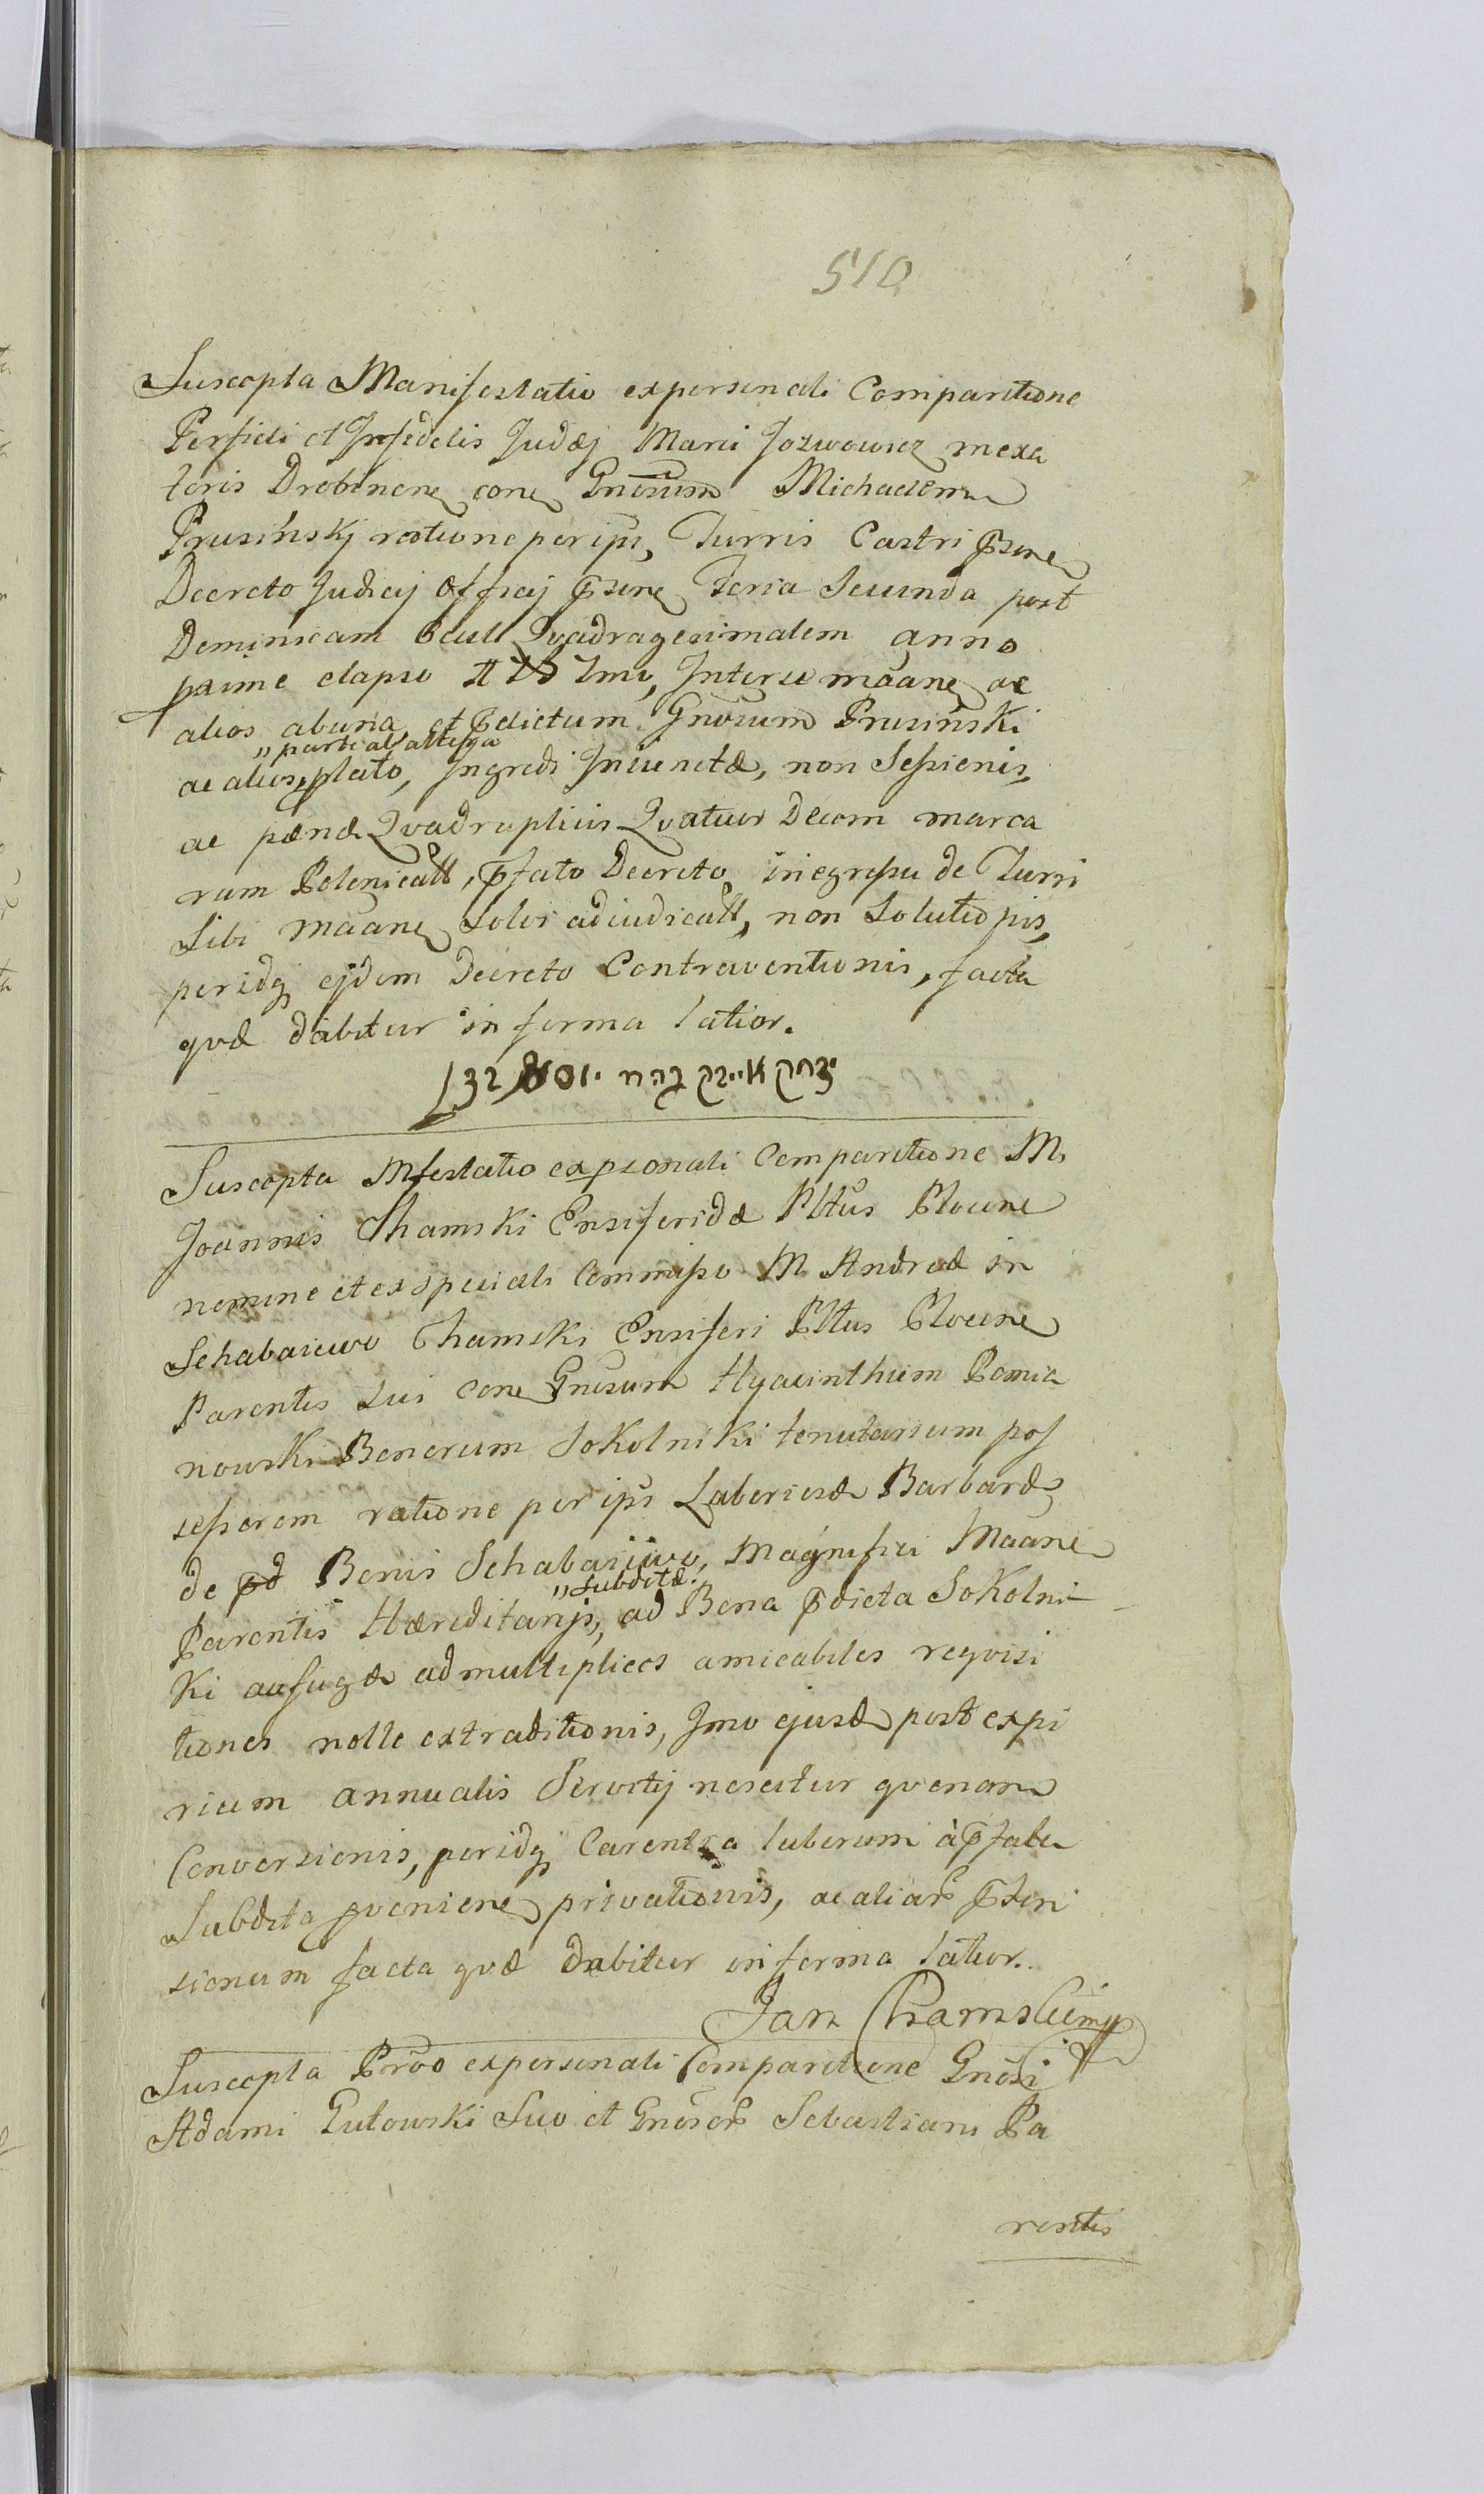 510
Suscepta Manifestatio ex personali Comparitione
Perfidi et Infidelis Judæj Marci Jozwowicz merca
toris Drobinen con Gnosum Michaelem
Prusinskj ratione per ips, Turris Castri Pnsen
Decreto Judicij Officij Pnsen Feria Secunda post
Dominicam Oculi Qvadragesimalem anno
pxime elapso Inter se māane ac
alios ab una et Pdictum Gnosum Prusinski
„parte ab altera
ac alios, plato, Ingredi Iniunctæ, non Sessionis,
ac pœnæ Qvadruplicis Qvatuor Decem marca
rum Polonicall, Pfato Decreto in egressu de Turri
Sibi māane Solvi adiudicall, non Solutiōnis,
per idq ejdem Decreto Contraventionis, facta
qvæ dabitur in forma latior.
יצחק אייזק
Suscepta Mfestatio ex psonali Comparitione M.
Joannis Chamski Ensiferidæ Pltus Plocen
nomine et ex speciali Commisso M Andreæ in
Schabaiewo Chamski Ensiferi Pltus Plocen
Parentis Sui con Gnosum Hyacinthum Pomia
nowski Bonorum Sokolniki tenutarium pos
sessorem ratione per ips Laboriosæ Barbaræ
de pd Bonis Schabaiiwo, Magnifici Māane
„Subditæ.
Parentis Hæreditarijs, ad Bona Pdicta Sokolni
ki aufugæ ad multiplices amicabiles reqvisi
tiones nolle extraditionis, Imo ejusd post expi
rium annualis Servitij nescitur qvonam
Conversionis, per idq Carentia laborum à Pfata
Subdita pvenien privationis, ac aliar Pten
sionum facta qvæ dabitur in forma latior.
Jan Chamski mp
Suscepta Prōo ex personali Comparitione Gnosi
Adami Gutowski Suo et Gnosor Sebastiani Pa
rentis